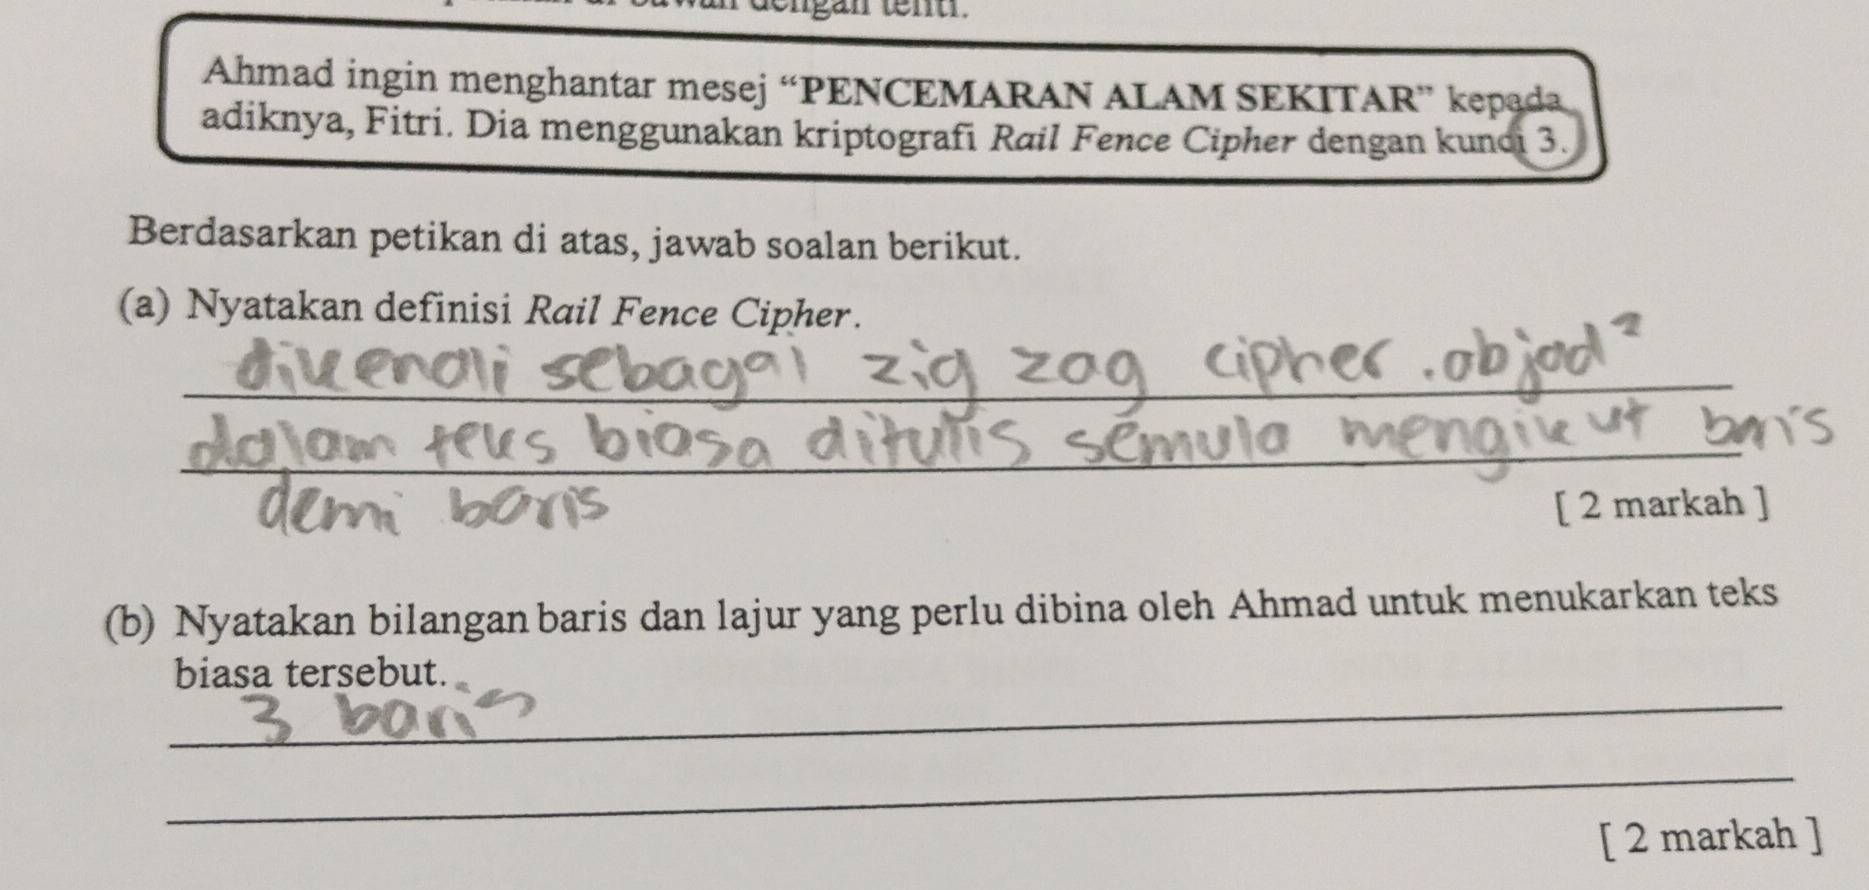 dengan tenti.
Ahmad ingin menghantar mesej “PENCEMARAN ALAM SEKITAR” kepada
adiknya, Fitri. Dia menggunakan kriptografi Rail Fence Cipher dengan kunci 3.
Berdasarkan petikan di atas, jawab soalan berikut.
(a) Nyatakan definisi Rail Fence Cipher.
dikenali sebagai zig zag cipher. abjad²
dalam teks biasa ditulis semula mengikut baris
demi baris
[ 2 markah ]
(b) Nyatakan bilangan baris dan lajur yang perlu dibina oleh Ahmad untuk menukarkan teks
biasa tersebut.
3 baris
[ 2 markah ]